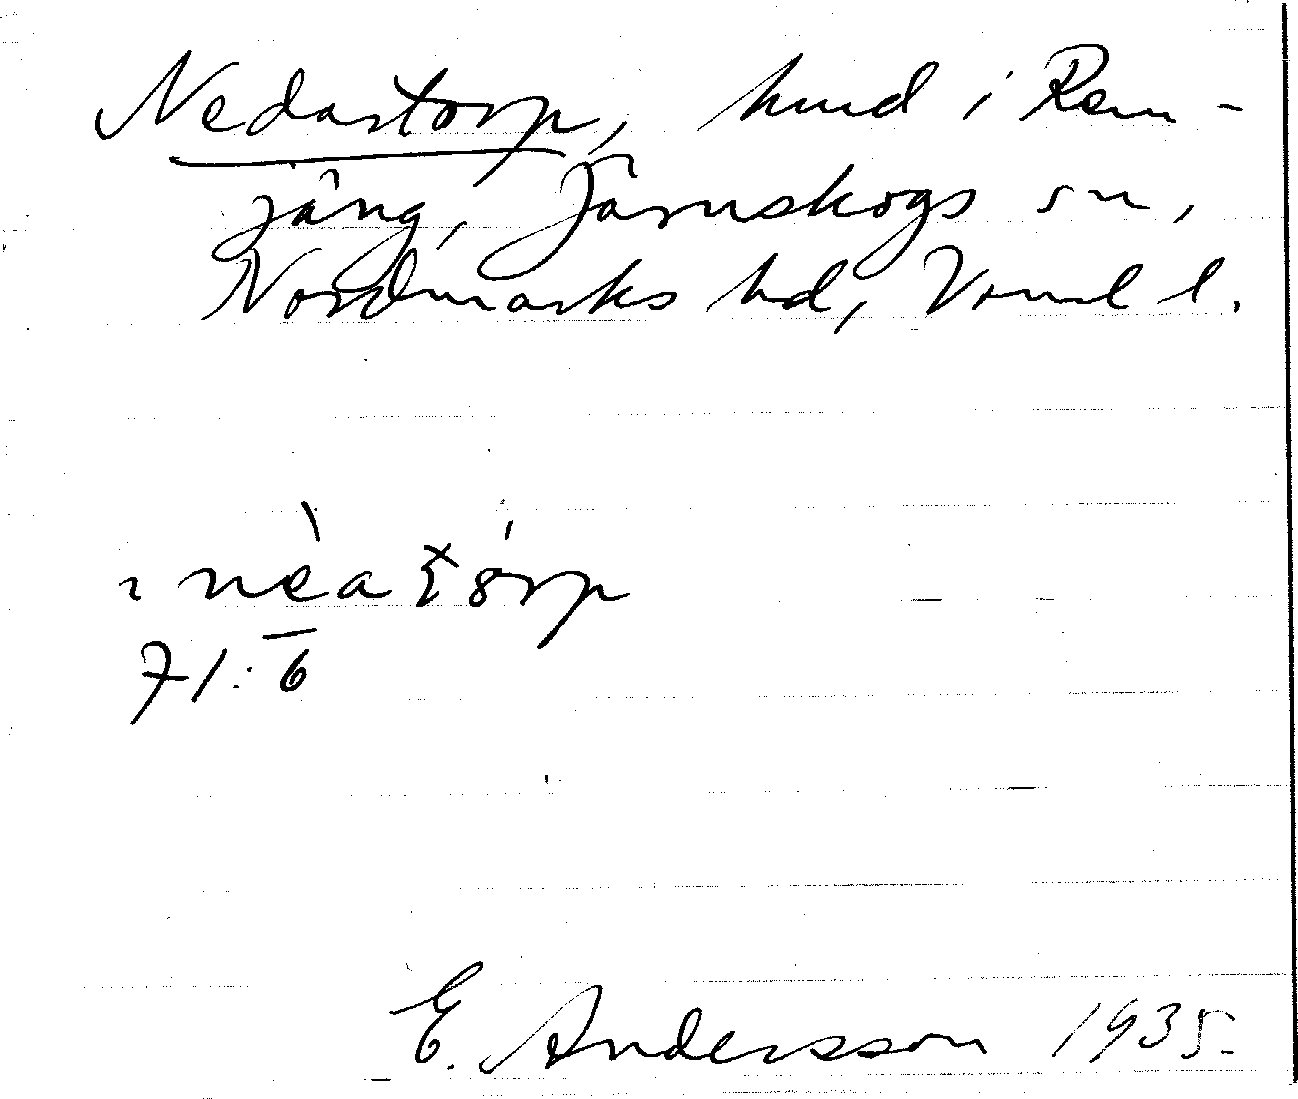 Nedastorp, hmd i Rem-
jäng, Järnskogs sn,
Nordmarks hd, Vrml l.
ı nèa tórp
71:6
E. Andersson 1935.